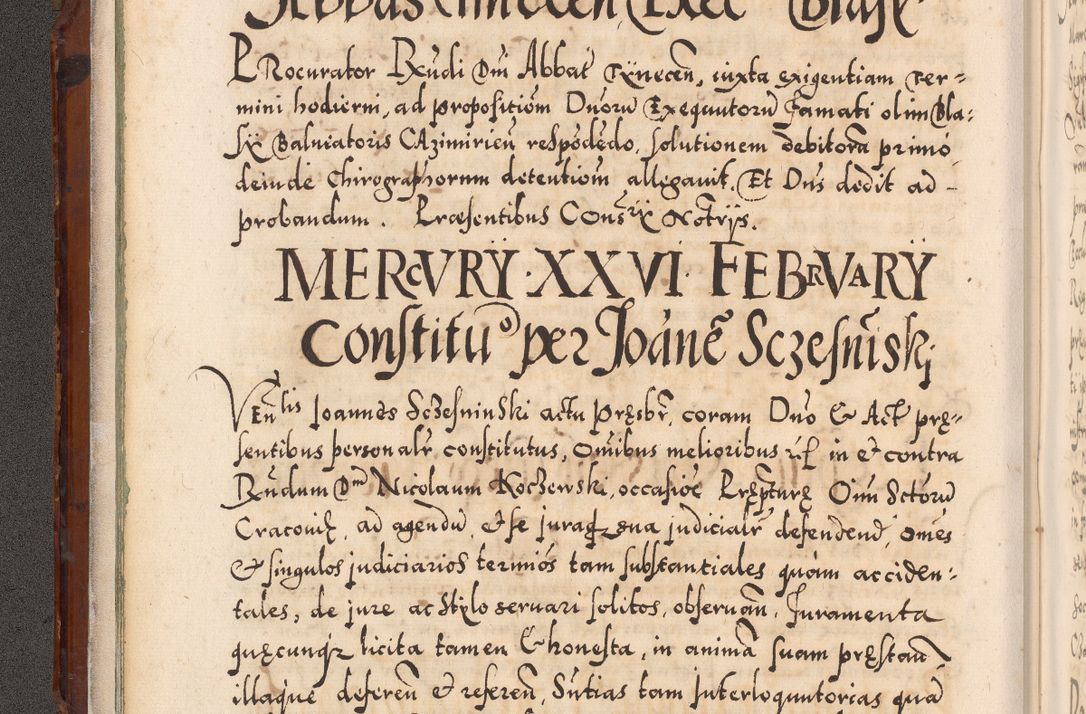 PRocurator Rxudi Dni Abbat Tÿnecen, iuxta exigentiam ter-
mini hodierni, ad propositiom Duoru Exequutoru Famati olim Bla-
sÿ Balneatoris CAzimirien respodedo, solutionem debitora primo
deinde Chirographorum detentiom allegavit. Et Dns dedit ad
probandum. Præsentibus Consrÿ Notrÿs.
MERCVRŸ · XXVI · FEBRVARŸ
Constituo per Joanē Sczesniskj
VEnlis Joannes Sczesninski actu pręsbr, coram Dno & Act prę-
sentibus personalr constitutus, Omibus melioribus in & contra
Rndum Dnm Nicolaum Koczewski, occasioe Pręptuę Oim Sctoru
Cracovię, ad agendu, & se juraq sua judicialr defendend, omes
& singulos judiciarios terminos tam substantiales quam acciden-
tales, de jure ac stylo servari solitos, observan, Juramenta
quęcunq licita tamen & honesta, in anima suam pręstan
illaque deferen & referen, Sntias tam Interloquutorias qua